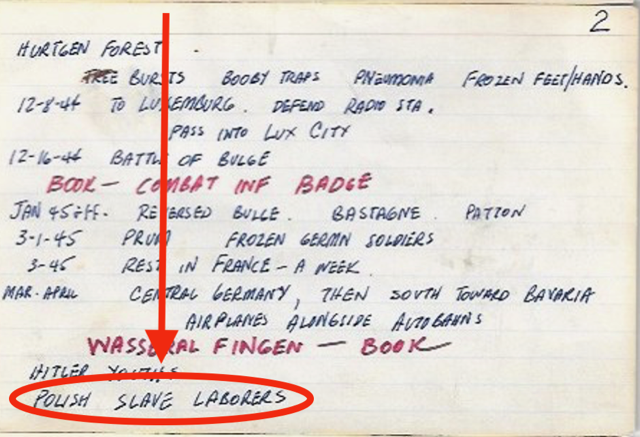 2
HURTGEN FOREST.
TREE BURSTS BOOBY TRAPS PNEUMONIA FROZEN FEET/HANDS.
12-8-44 TO LUXEMBURG. DEFEND RADIO STA.
PASS INTO LUX CITY
12-16-44 BATTLE OF BULGE
BOOK - COMBAT INF BADGE
JAN 45 REVERSED BULGE. BASTAGNE. PATTON
3-1-45 PRUM FROZEN GERMN SOLDIERS
3-45 REST IN FRANCE - A WEEK.
MAR-APRIL CENTRAL GERMANY, THEN SOUTH TOWARD BAVARIA
AIRPLANES ALONGSIDE AUTOBAHNS
WASSERAL FINGEN - BOOK
HITLER YOUTHS
POLISH SLAVE LABORERS